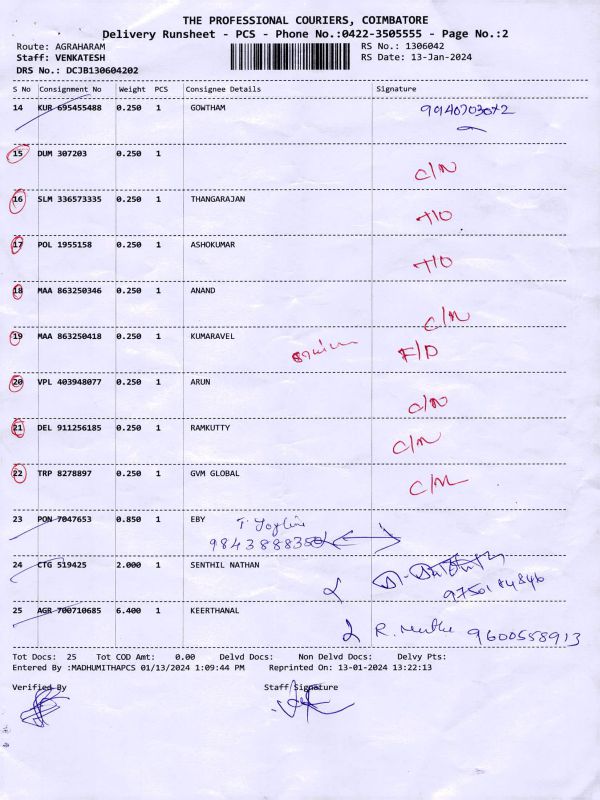 THE PROFESSIONAL COURIERS, COIMBATORE
Delivery Runsheet - PCS - Phone No.:0422-3505555 - Page No.:2
Route: AGRAHARAM RS No.: 1306042
Staff: VENKATESH RS Date: 13-Jan-2024
DRS No.: DCJB130604202
S No Consignment No Weight PCS Consignee Details Signature
14 KUR 695455488 0.250 1 GOWTHAM
15 DUM 307203 0.250 1
C/N
16 SLM 336573335 0.250 1 THANGARAJAN
T/O
17 POL 1955158 0.250 1 ASHOKUMAR
T/O
18 MAA 863250346 0.250 1 ANAND
C/N
19 MAA 863250418 0.250 1 KUMARAVEL
F/D
20 VPL 403948077 0.250 1 ARUN
C/N
21 DEL 911256185 0.250 1 RAMKUTTY
C/N
22 TRP 8278897 0.250 1 GVM GLOBAL
C/N
23 PON 7047653 0.850 1 EBY
24 CTG 519425 2.000 1 SENTHIL NATHAN
25 AGR 700710685 6.400 1 KEERTHANAL
9600558913
Tot Docs: 25 Tot COD Amt: 0.00 Delvd Docs: Non Delvd Docs: Delvy Pts:
Entered By :MADHUMITHAPCS 01/13/2024 1:09:44 PM Reprinted On: 13-01-2024 13:22:13
Verified By Staff Signature